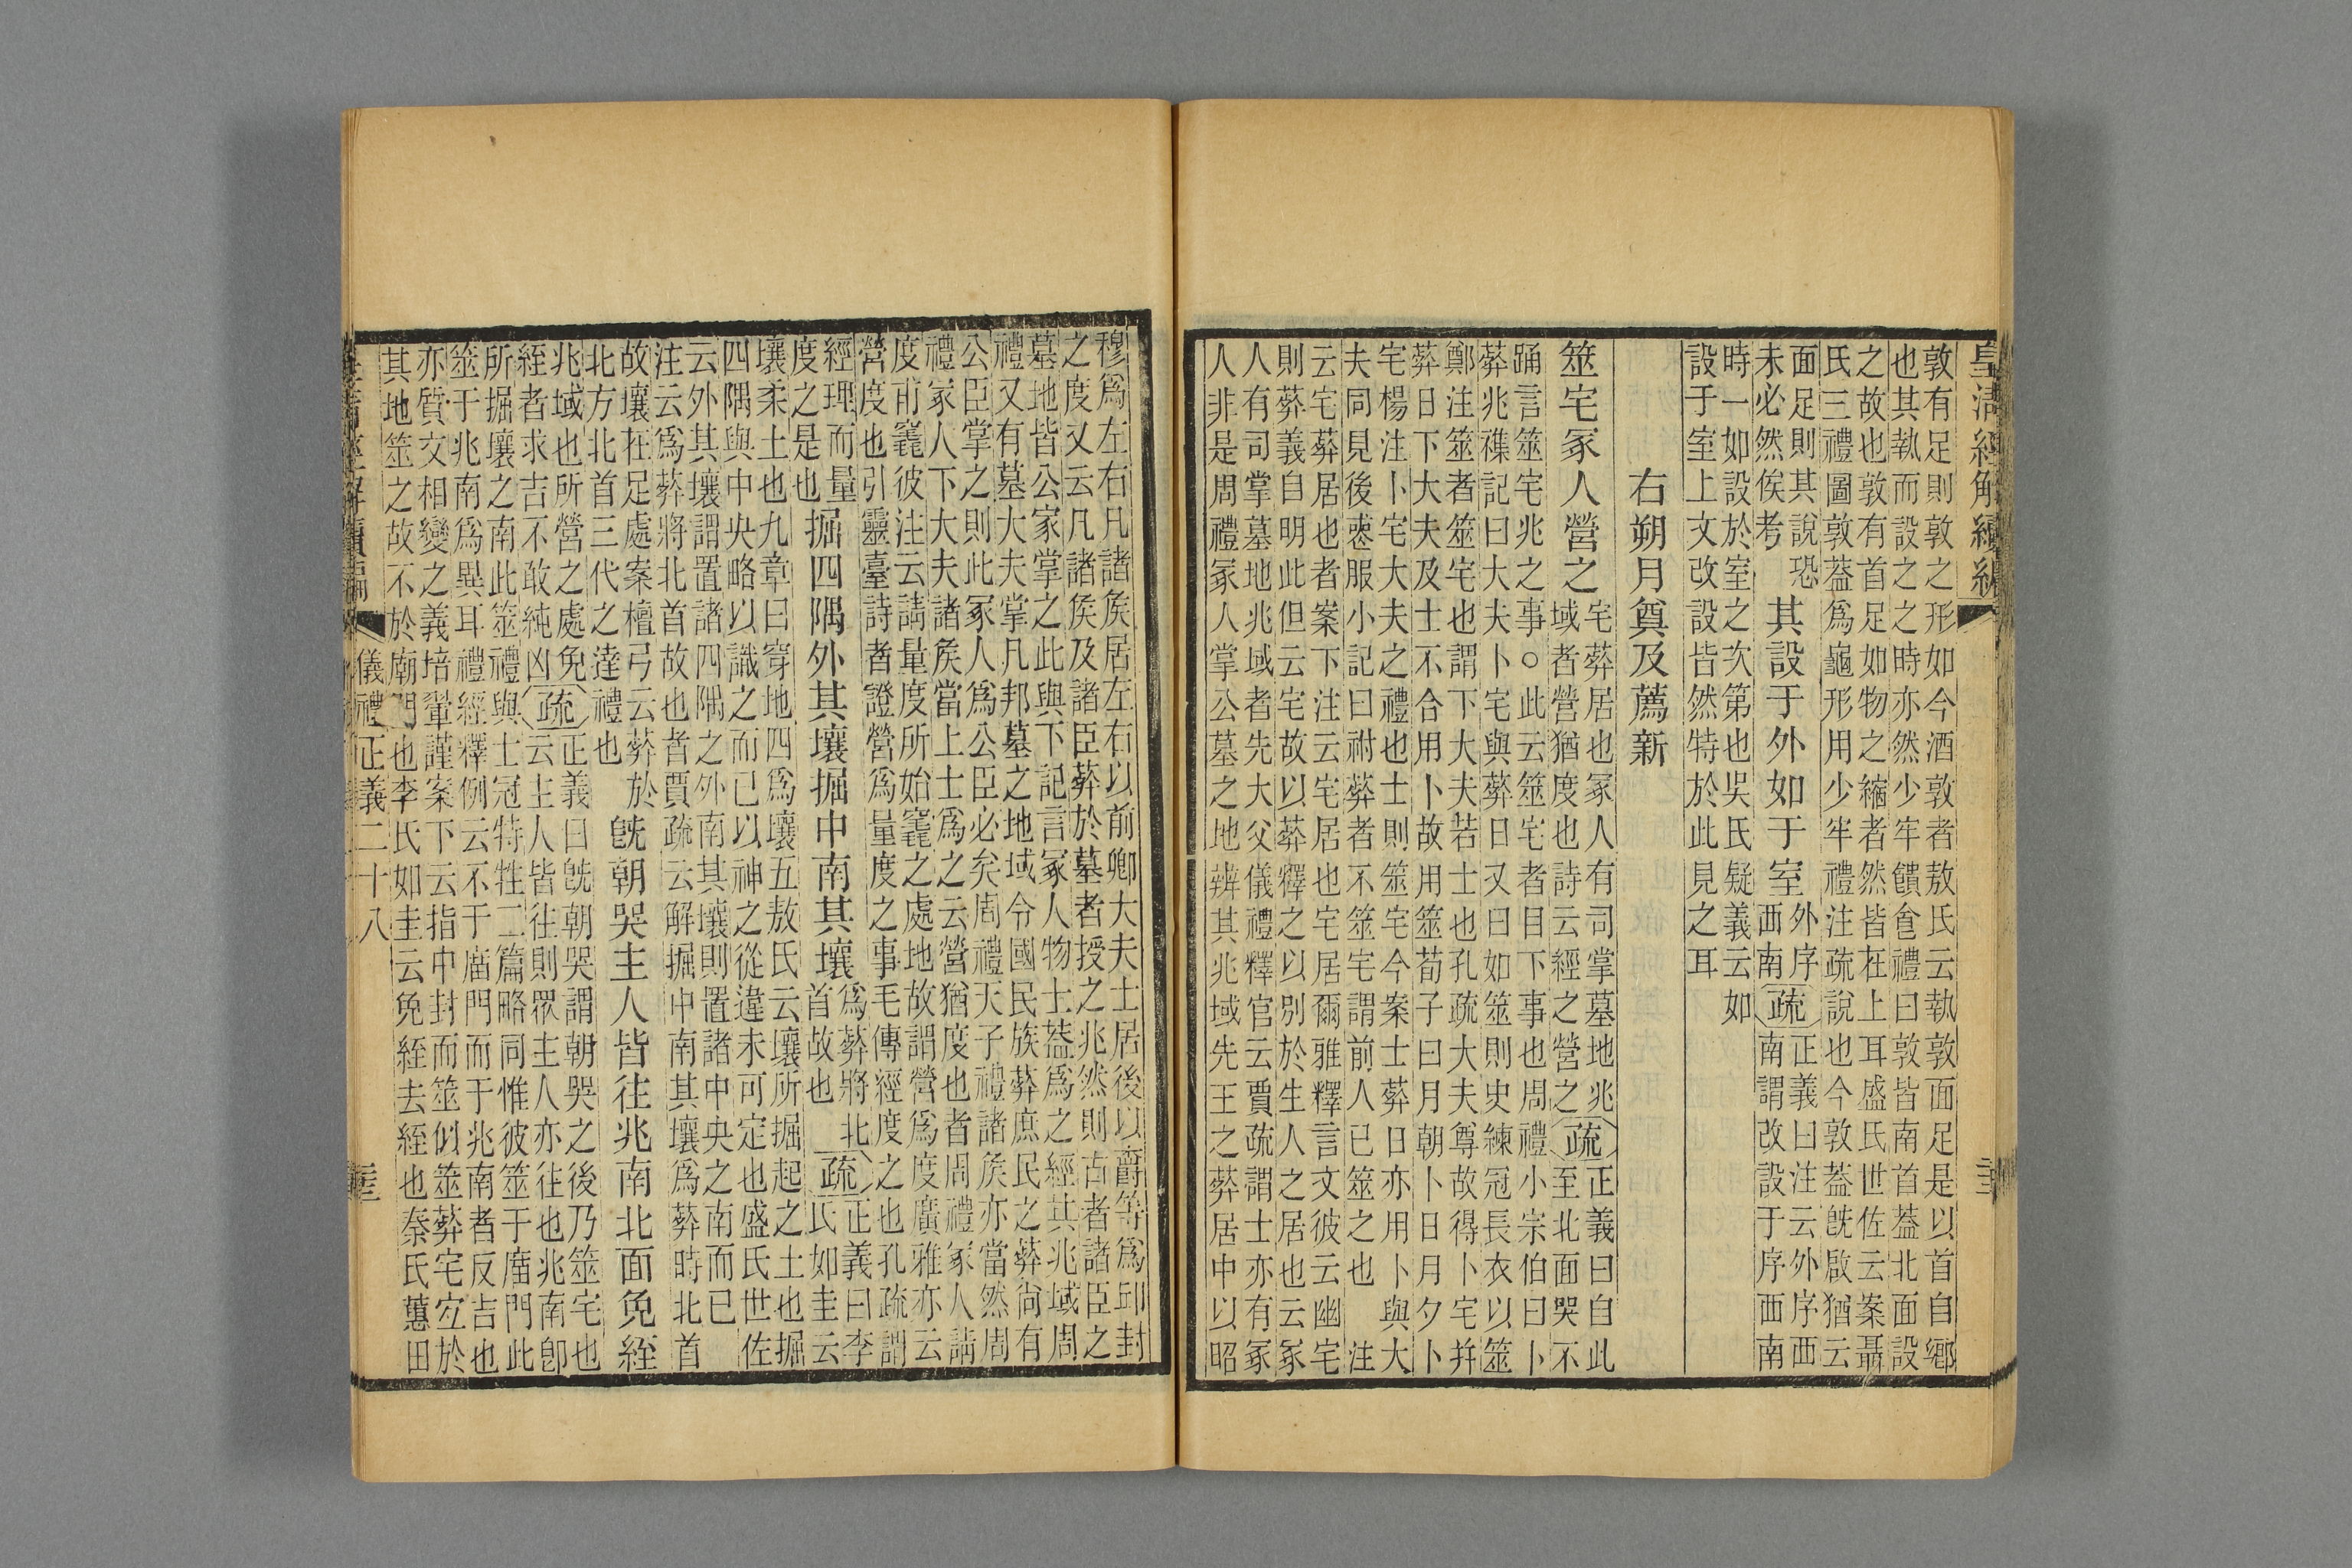 皇清經解續編
敦有足則敦之形如今酒敦者敖氏云執敦面足是以首自鄉
也其執而設之之時亦然少牢饋食禮曰敦皆南首蓋北面設
之故也敦有首足如物之縮者然皆在上耳盛氏世佐云案聶
氏三禮圖敦蓋爲龜形用少牢禮注疏說也今敦蓋旣啟猶云
面足則其說恐
未必然俟考
其設于外如于室
外序
西南
疏
正義曰注云外序西
南謂改設于序西南
時一如設於室之次第也吳氏疑義云如
設于室上文改設皆然特於此見之耳
右朔月奠及薦新
筮宅冢人營之
宅葬居也冢人有司掌墓地兆
域者營猶度也詩云經之營之
疏
正義曰自此
至北面哭不
踊言筮宅兆之事○此云筮宅者目下事也周禮小宗伯曰卜
葬兆襍記曰大夫卜宅與葬日又曰如筮則史練冠長衣以筮
鄭注筮者筮宅也謂下大夫若士也孔疏大夫尊故得卜宅幷
葬日下大夫及士不合用卜故用筮荀子曰月朝卜日月夕卜
宅楊注卜宅大夫之禮也士則筮宅今案士葬日亦用卜與大
夫同見後服小記曰祔葬者不筮宅謂前人已筮之也 注
云宅葬居也者案下注云宅居也宅居爾雅釋言文彼云幽宅
則葬義自明此但云宅故以葬釋之以別於生人之居也云冢
人有司掌墓地兆域者先大父儀禮釋官云賈疏謂士亦有冢
人非是周禮冢人掌公墓之地辨其兆域先王之葬居中以昭
穆爲左右凡諸矦居左右以前卿大夫士居後以爵等爲邱封
之度又云凡諸矦及諸臣葬於墓者授之兆然則古者諸臣之
墓地皆公家掌之此與下記言冢人物士蓋爲之經其兆域周
禮又有墓大夫掌凡邦墓之地域令國民族葬庶民之葬尙有
公臣掌之則此冢人爲公臣必矣周禮天子禮諸矦亦當然周
禮冢人下大夫諸矦當上士爲之云營猶度也者周禮冢人請
度甫竁彼注云請量度所始竁之處地故謂營爲度廣雅亦云
營度也引靈臺詩者證營爲量度之事毛傳經度之也孔疏謂
經理而量
度之是也
掘四隅外其壤掘中南其壤
爲葬將北
首故也
疏
正義曰李
氏如圭云
壤柔土也九章曰穿地四爲壤五敖氏云壤所掘起之土也掘
四隅與中央略以識之而已以神之從違未可定也盛氏世佐
云外其壤謂置諸四隅之外南其壤則置諸中央之南而已
注云爲葬將北首故也者賈疏云解掘中南其壤爲葬時北首
故壤在足處案檀弓云葬於
北方北首三代之達禮也
旣朝哭主人皆往兆南北面免絰
兆域也所營之處免
絰者求吉不敢純凶
疏
正義曰旣朝哭謂朝哭之後乃筮宅也
云主人皆往則眾主人亦往也兆南卽
所掘壤之南此筮禮與士冠特牲二篇略同惟彼筮于廟門此
筮于兆南爲異耳禮經釋例云不于廟門而于兆南者反吉也
亦質文相變之義培翬謹案下云指中封而筮似筮葬宅宐於
其地筮之故不於廟門也李氏如圭云免絰去絰也秦氏蕙田
儀禮正義二十八